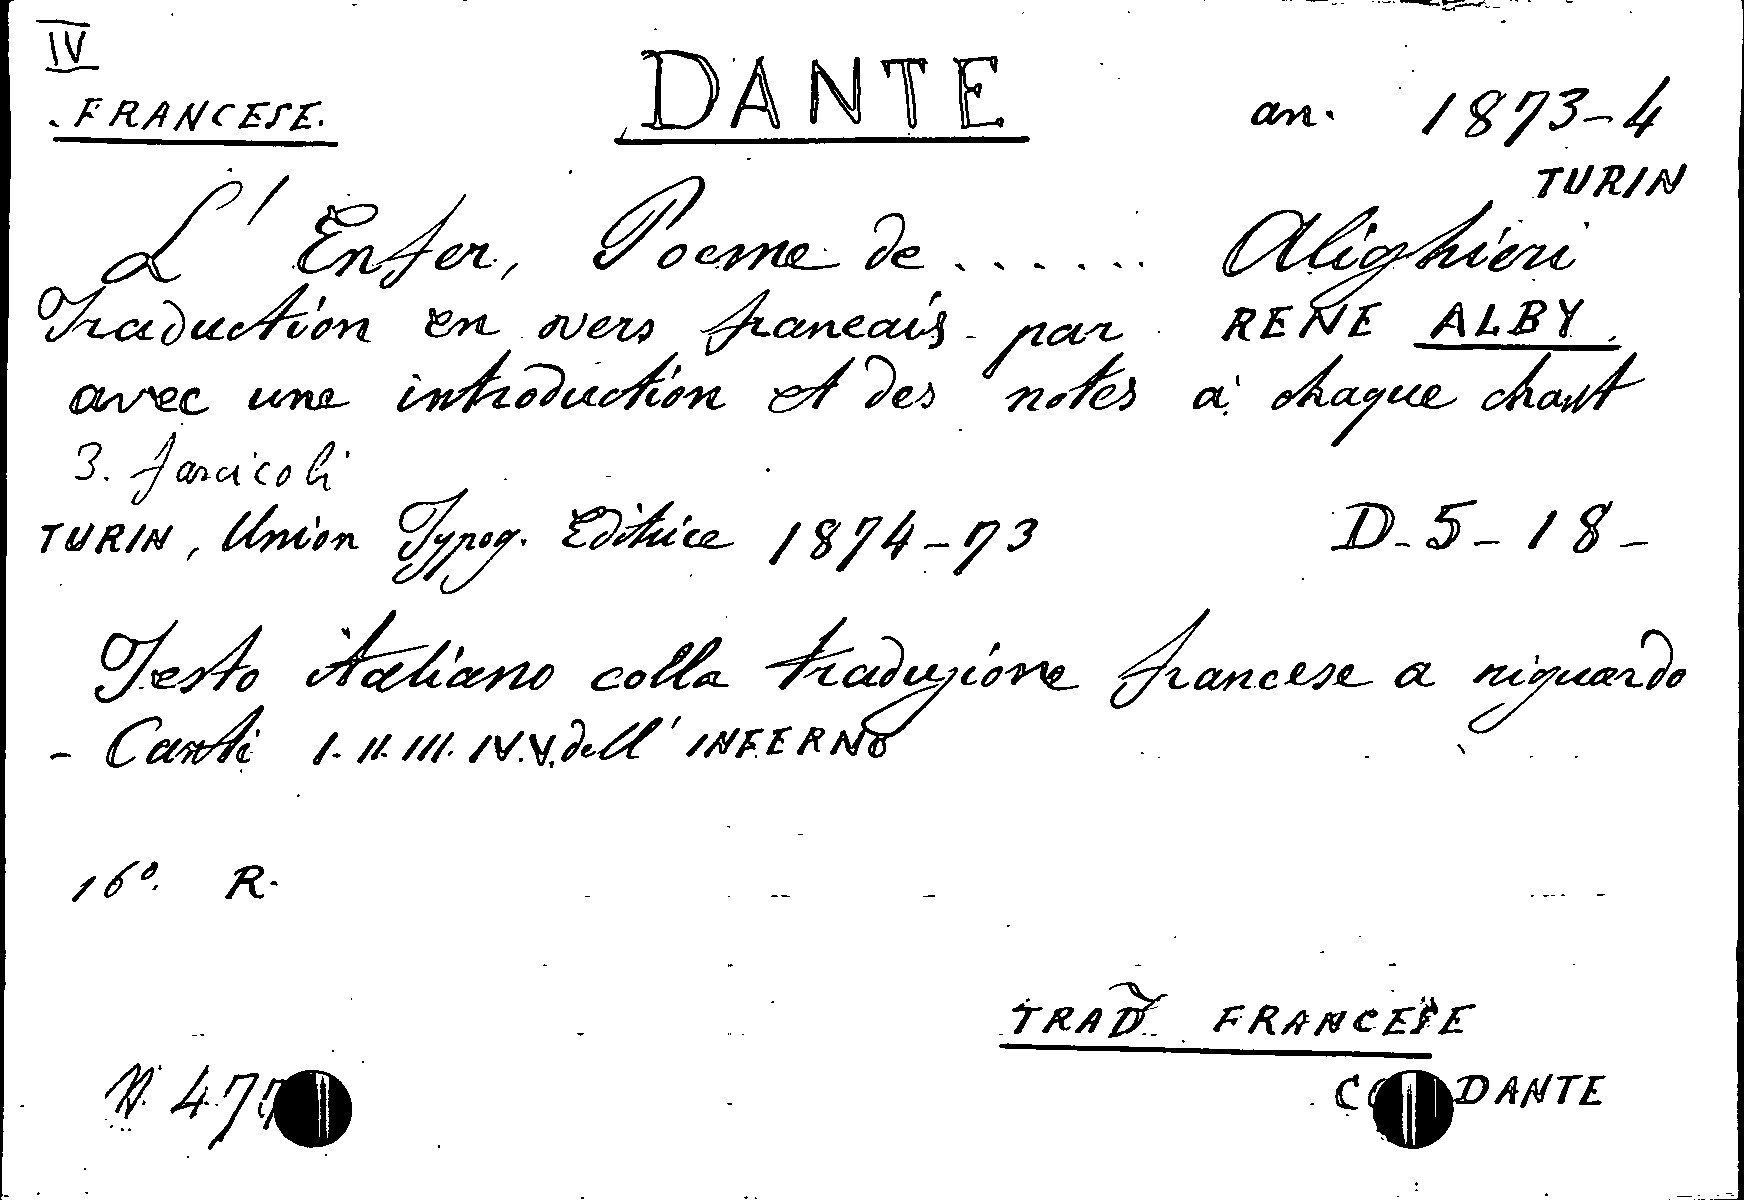 IV
. FRANCESE. DANTE an. 1873-4
TURIN
L' Enfer, Poeme de ...... Alighieri
Traduction en vers francais par RENE ALBY.
avec une introduction et des notes a chaque chant
3. fascicoli
TURIN, Union Typog. Editrice 1874-73 D-5-18-
Testo italiano colla traduzione francese a riguardo
- Canti I. II. III. IV. V. dell' INFERNO
16º. R.
TRAD FRANCESE
N. 47
DANTE